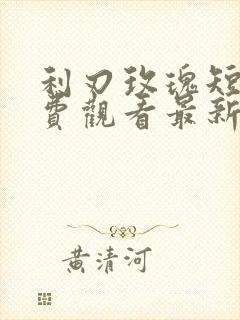 利刃玫瑰短
費觀看最新
黃清河